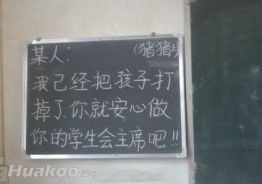 某人：
(猪猪妹)
我已经把孩子打
掉了.你就安心做
你的学生会主席吧!!
Huakoo